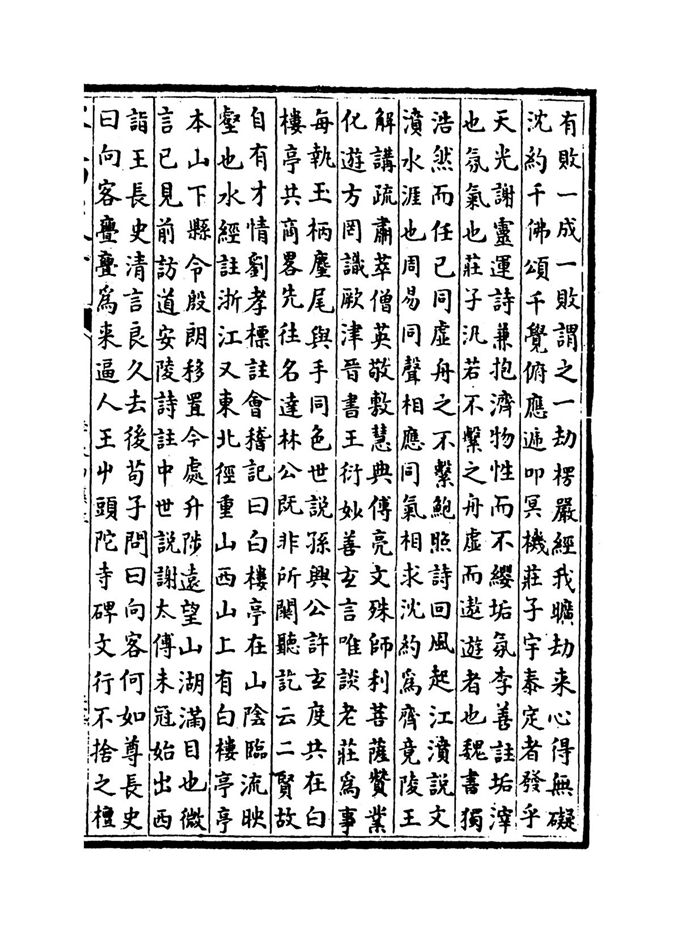 有敗一成一敗謂之一劫楞嚴經我曠劫來心得無礙
沈約千佛頌千覺俯應遞叩冥機莊子宇泰定者發乎
天光謝靈運詩兼抱濟物性而不纓垢氛李善註垢滓
也氛氣也莊子汎若不繫之舟虛而遨遊者也魏書獨
浩然而任己同虛舟之不繫鮑照詩回風起江濆說文
濆水涯也周易同聲相應同氣相求沈約為齊竟陵王
解講疏肅萃僧英敬敷慧典傅亮文殊師利菩薩贊業
化遊方罔識厥津晉書王衍妙善玄言唯談老莊為事
每執玉柄麈尾與手同色世說孫興公許玄度共在白
樓亭共商畧先往名達林公既非所關聽訖云二賢故
自有才情劉孝標註會稽記曰白樓亭在山陰臨流映
壑也水經註浙江又東北徑重山西山上有白樓亭亭
本山下縣令殷朗移置今處升陟遠望山湖滿目也微
言已見前訪道安陵詩註中世說謝太傅未冠始出西
詣王長史清言良久去後苟子問曰向客何如尊長史
曰向客亹亹為來逼人王屮頭陀寺碑文行不捨之檀